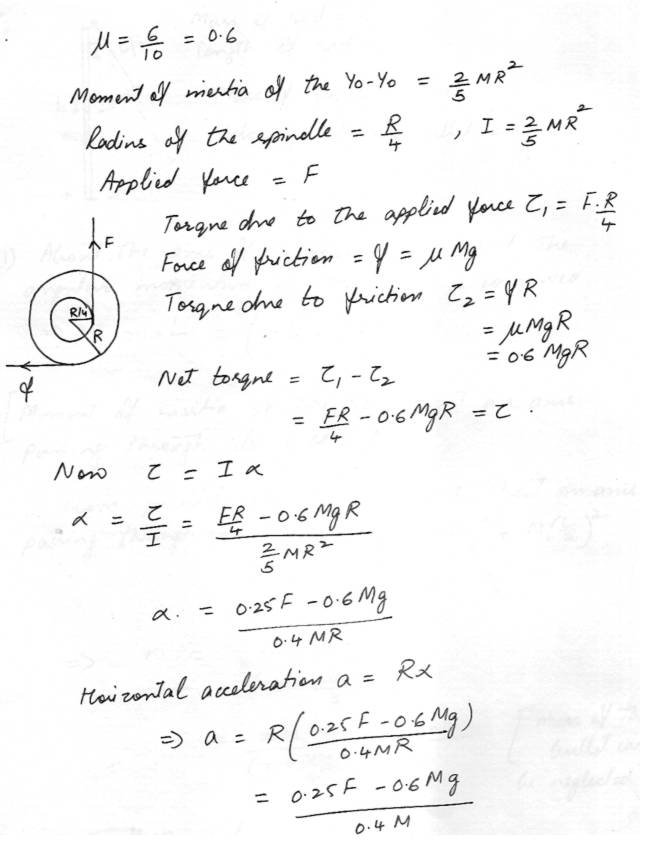 μ = 6/10 = 0.6
Moment of inertia of the Yo-Yo = 2/5 MR²
Radius of the spindle = R/4 , I = 2/5 MR²
Applied force = F
Torque due to the applied force τ₁ = F.R/4
Force of friction = f = μ Mg
Torque due to friction τ₂ = f R
= μMgR
= 0.6 MgR
F
R/4
R
f
Net torque = τ₁ - τ₂
= FR/4 - 0.6 MgR = τ .
Now τ = I α
α = τ/I = (FR/4 - 0.6 MgR)/(2/5 MR²)
α. = (0.25F - 0.6 Mg)/(0.4 MR)
Horizontal acceleration a = Rα
⇒ a = R((0.25F - 0.6 Mg)/(0.4MR))
= (0.25F - 0.6 Mg)/(0.4 M)